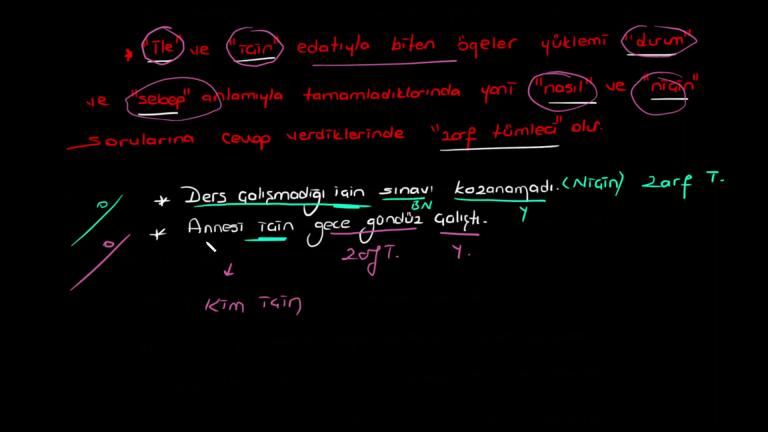 * "İle" ve "için" edatıyla biten ögeler yüklemi "durum"
ve "sebep" anlamıyla tamamladıklarında yani "nasıl" ve "niçin"
sorularına cevap verdiklerinde "zarf tümleci" olur.
* Ders çalışmadığı için sınavı kazanamadı. (Niçin) Zarf T.
BN Y
* Annesi için gece gündüz çalıştı.
Zarf T. Y.
Kim için